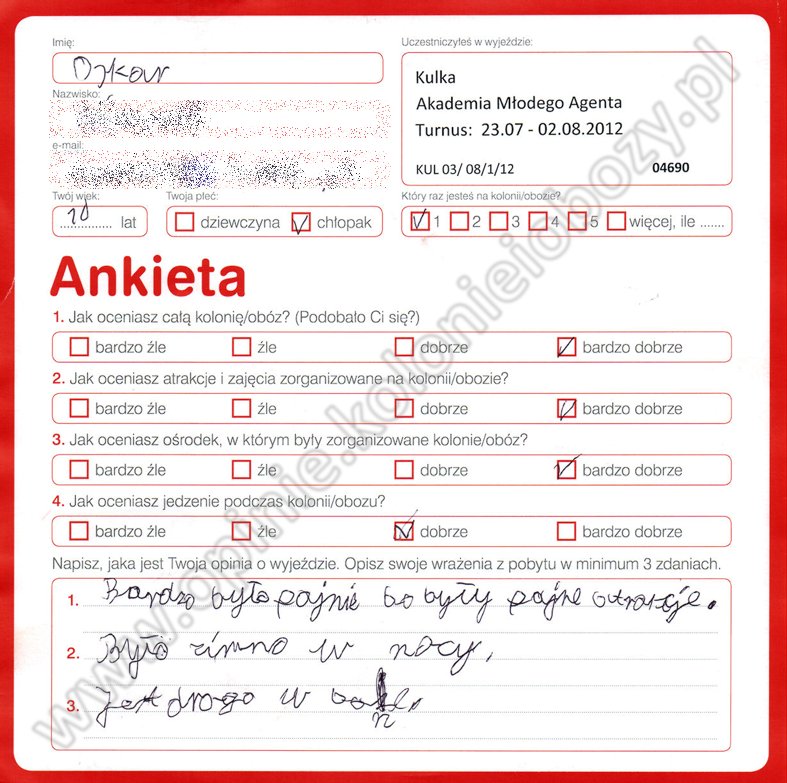 Imię:
Uczestniczyłeś w wyjeździe:
Oskar
Kulka
Nazwisko:
Akademia Młodego Agenta
Turnus: 23.07 - 02.08.2012
e-mail:
KUL 03/ 08/1/12 04690
Twój wiek: Twoja płeć: Który raz jesteś na kolonii/obozie?
10 lat dziewczyna chłopak 1 2 3 4 5 więcej, ile .......
Ankieta
1. Jak oceniasz całą kolonię/obóz? (Podobało Ci się?)
bardzo źle źle dobrze bardzo dobrze
2. Jak oceniasz atrakcje i zajęcia zorganizowane na kolonii/obozie?
bardzo źle źle dobrze bardzo dobrze
3. Jak oceniasz ośrodek, w którym były zorganizowane kolonie/obóz?
bardzo źle źle dobrze bardzo dobrze
4. Jak oceniasz jedzenie podczas kolonii/obozu?
bardzo źle źle dobrze bardzo dobrze
Napisz, jaka jest Twoja opinia o wyjeździe. Opisz swoje wrażenia z pobytu w minimum 3 zdaniach.
1. Bardzo było fajnie bo były fajne atrakcje.
2. Było zimno w nocy.
3. Jest drogo w
www.opinie.kolonieiobozy.pl